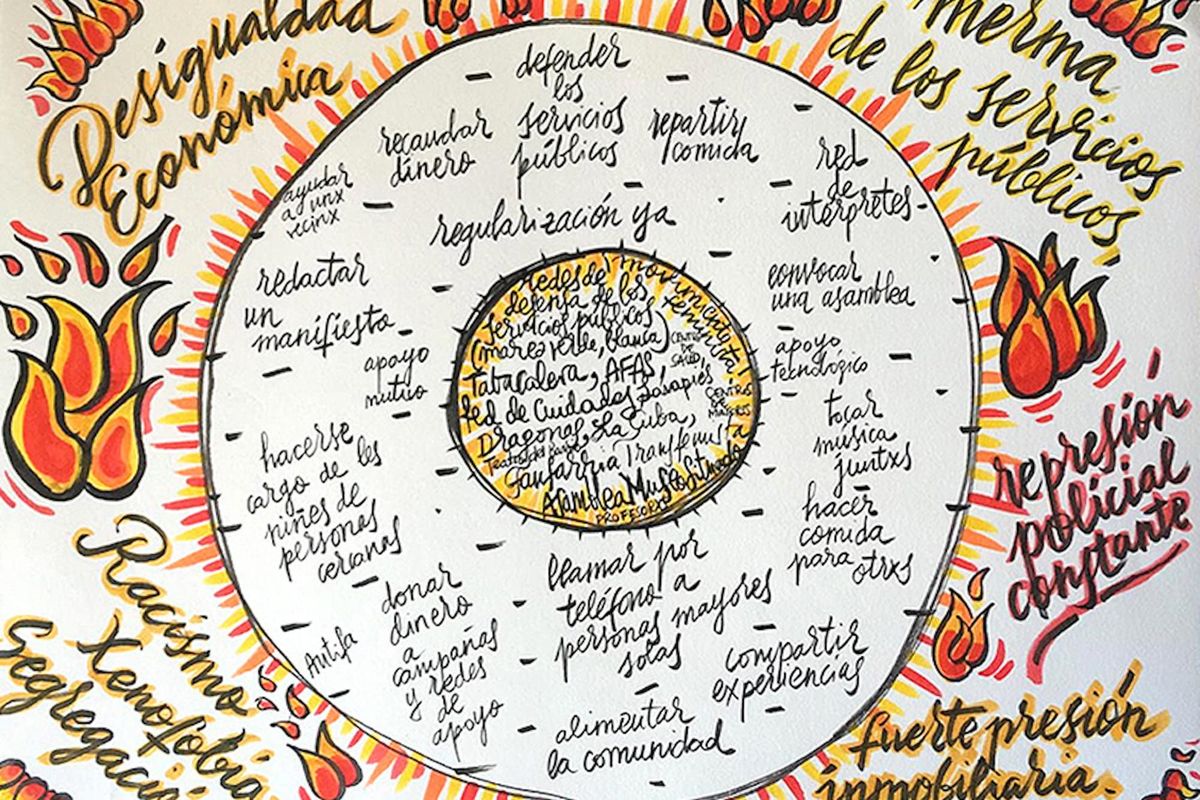 Desigualdad
Económica
merma
de los servicios
públicos,
represión
policial
constante
fuerte presión
inmobiliaria.
Racismo
Xenofobia
Segregació
defender
los
servicios
públicos
recaudar
dinero
repartir
comida
red
de
intérpretes
ayudar
a unx
vecinx
regularización ya
redactar
un
manifiesto
convocar
una asamblea
apoyo
mutuo
apoyo
tecnológico
tocar
música
juntxs
hacerse
cargo de les
niñes de
personas
cercanas
hacer
comida
para otrxs
donar
dinero
a
campañas
y redes
de
apoyo
Antifa
llamar por
teléfono a
personas mayores
solas
compartir
experiencias
alimentar
la comunidad
redes de
defensa de los
servicios públicos
(marea verde, blanca)
movimiento
feminista,
CENTRO
DE
SALUD
Tabacalera, AFAS,
Red de Cuidados Lavapiés
CENTROS
DE
MAYORES
Dragones, La Cuba,
Teatro del Barrio
Fanfarria Transfeminista
Asamblea Museo Situado
PROFESORXS